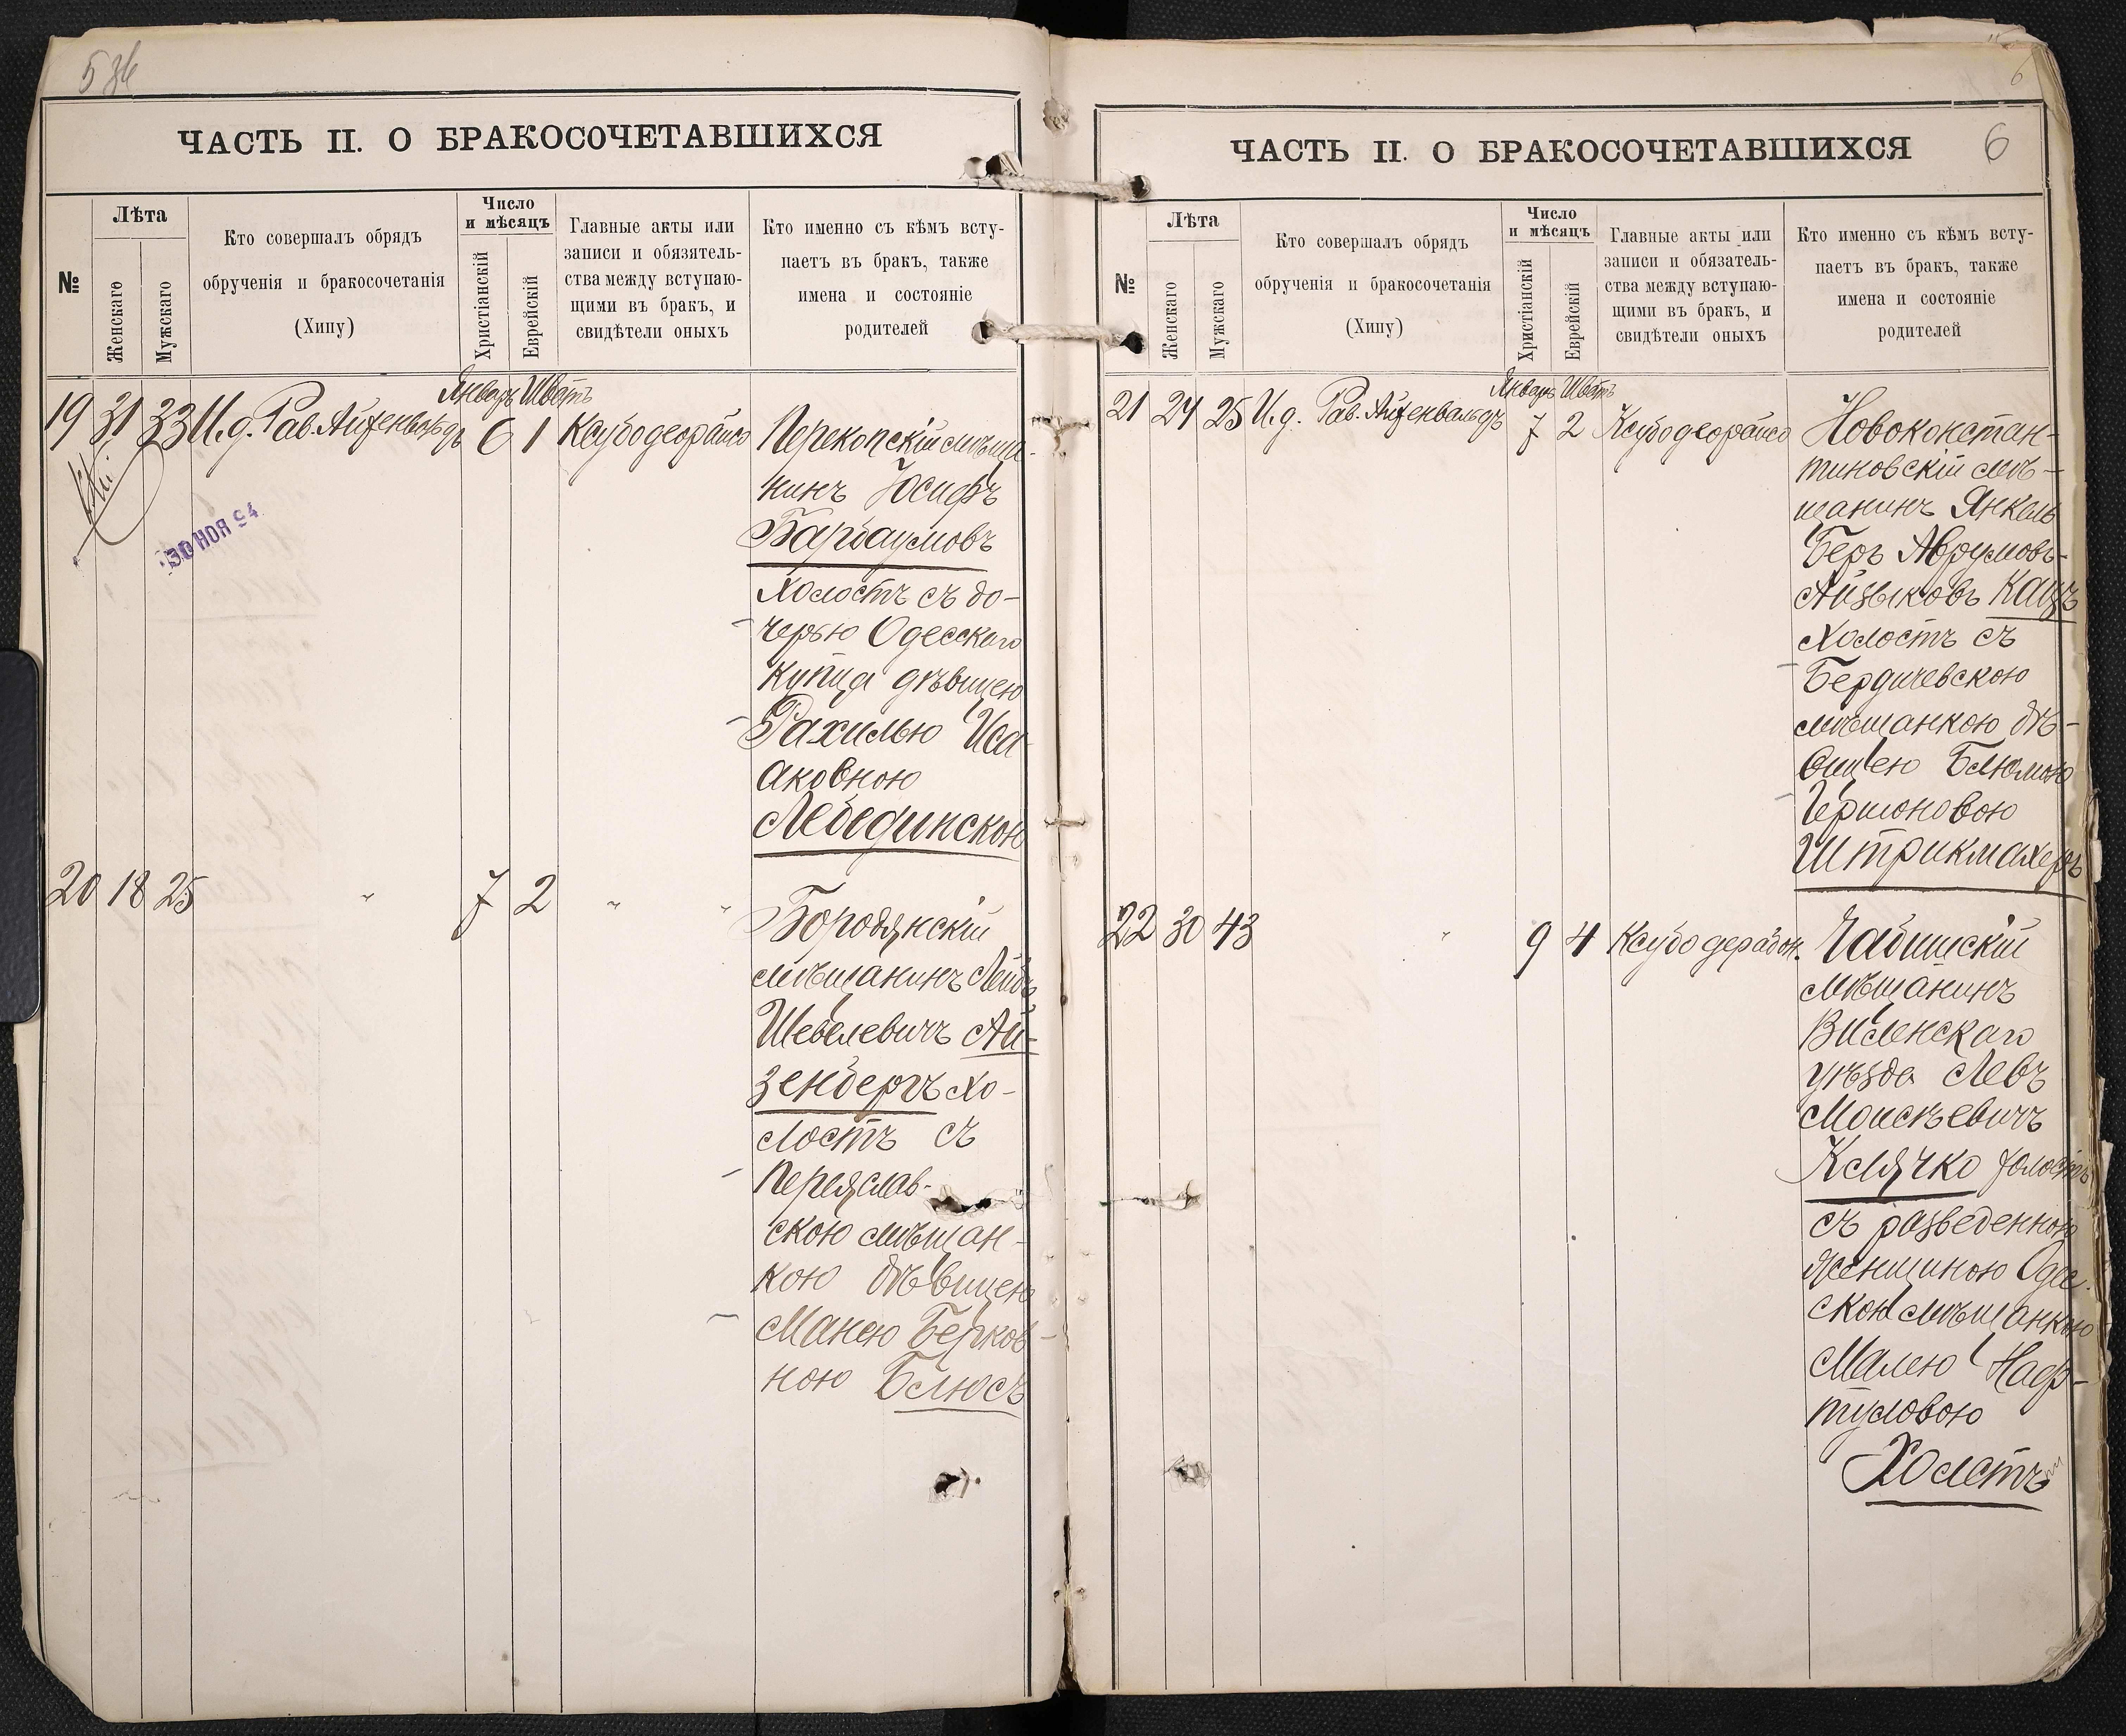 ЧАСТЬ II. О БРАКОСОЧЕТАВШИХСЯ
№
Лѣта
Женскаго
Мужскаго
Кто совершалъ обрядъ
обрученія и бракосочетанія
(Хипу)
Число
и мѣсяцъ
Христіанскій
Еврейскій
Главные акты или
записи и обязатель-
ства между вступаю-
щими въ бракъ, и
свидѣтели оныхъ
Кто именно съ кѣмъ всту-
паетъ въ бракъ, также
имена и состояніе
родителей
Январь Шватъ
19 31 33 И.д. Рав. Айзенвальдъ 6 1 Ксубо деорайсо
Перекопскій мѣща-
нинъ Іосифъ
Барбаумовъ
холостъ съ до-
черью Одесскаго
купца дѣвицею
Рахилью Иса
аковною
Лебединскою
30 НОЯ 94
20 18 25 " 7 2 " "
Бородянскій
мѣщанинъ Лейбъ
Шевелевичъ Ай-
зенбергъ хо-
лостъ съ
Переяслав-
скою мѣщан-
кою дѣвицею
Манею Берков-
ною Блюсъ
ЧАСТЬ II. О БРАКОСОЧЕТАВШИХСЯ
6
№
Лѣта
Женскаго
Мужскаго
Кто совершалъ обрядъ
обрученія и бракосочетанія
(Хипу)
Число
и мѣсяцъ
Христіанскій
Еврейскій
Главные акты или
записи и обязатель-
ства между вступаю-
щими въ бракъ, и
свидѣтели оныхъ
Кто именно съ кѣмъ всту-
паетъ въ бракъ, также
имена и состояніе
родителей
Январь Шватъ
21 24 25 И.д. Рав. Айзенвальдъ 7 2 Ксубо деорайсо
Новоконстан-
тиновскій мѣ-
щанинъ Янкель
Беръ Аврумовъ-
Айзыковъ Кацъ
холостъ съ
Бердичевскою
мѣщанкою дѣ-
вицею Блюмою
Гершоновою
Штрикмахеръ
22 30 43 " 9 4 Ксубо дерабон.
Габишскій
мѣщанинъ
Виленскаго
уѣзда Левъ
Моисѣевичъ
Клячко холостъ
съ разведенною
женщиною Одес
скою мѣщанкою
Малею Наф-
туловою
Холстъ